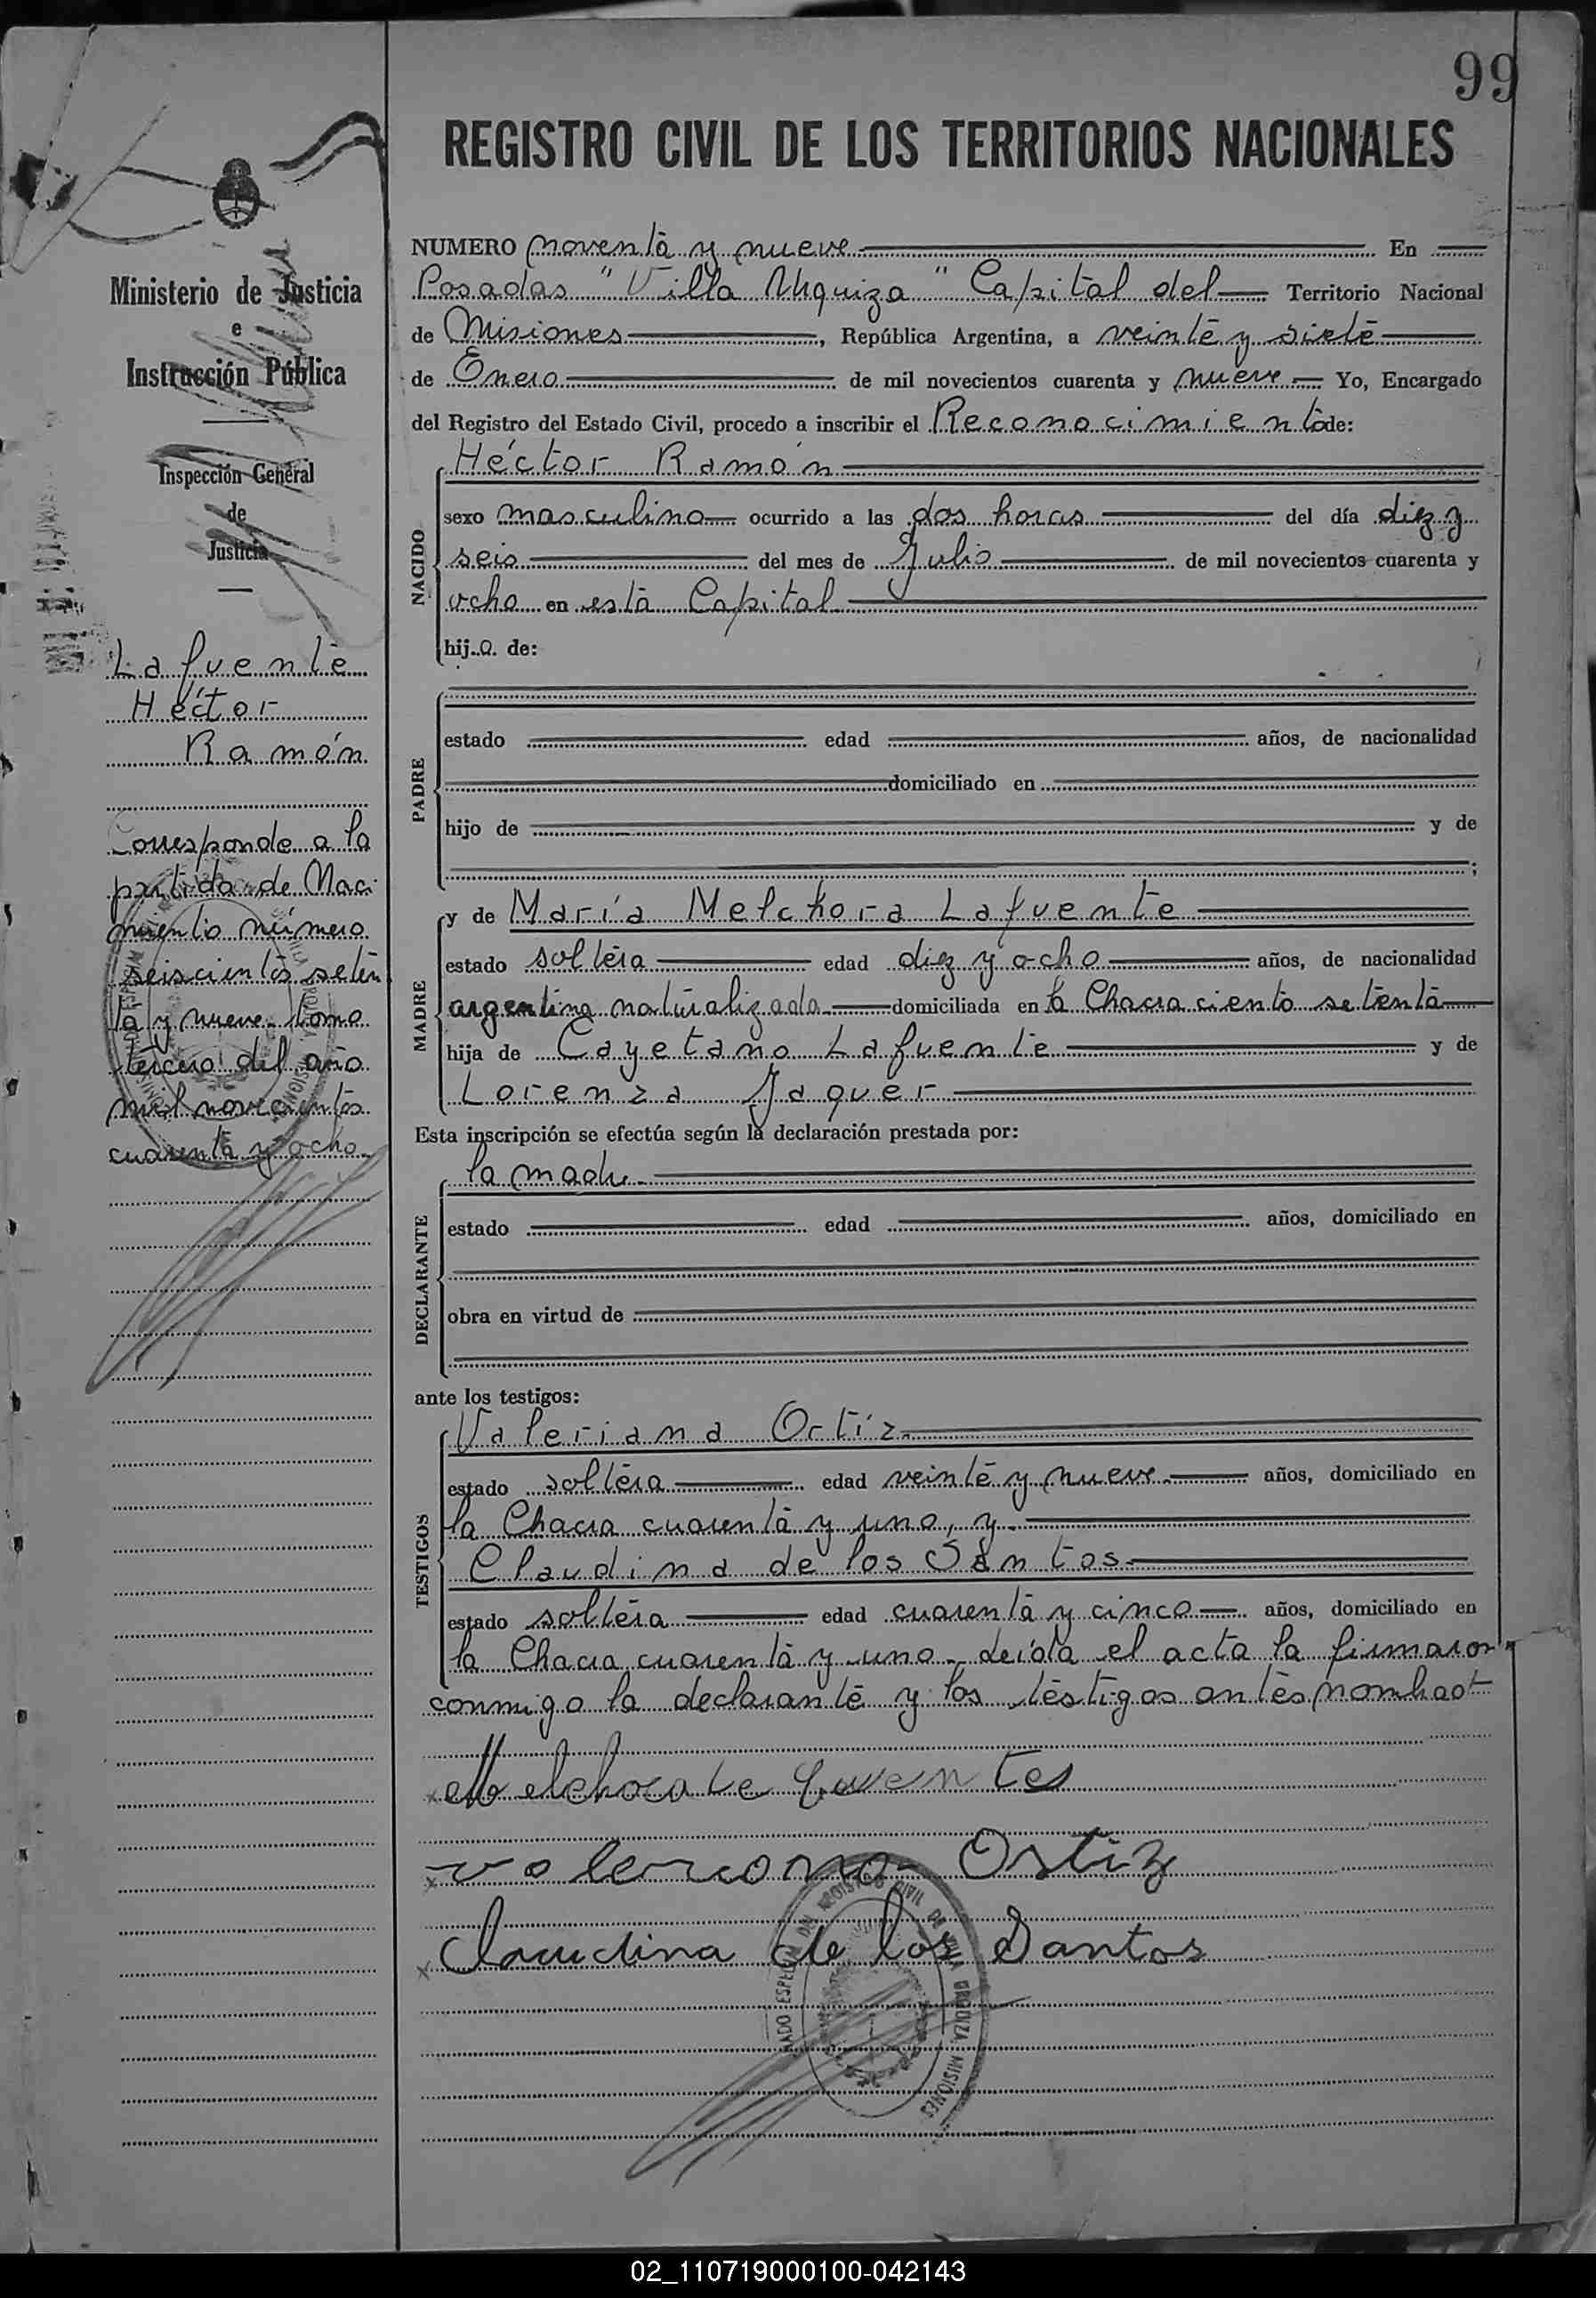 99
REGISTRO CIVIL DE LOS TERRITORIOS NACIONALES
Ministerio de Justicia
e
Instrucción Pública
Inspección General
de
Justicia
Lafuente
Héctor
Ramón
Corresponde a la
partida de Naci
miento número
seiscientos seten
ta y nueve tomo
tercero del año
mil novecientos
cuarenta y ocho
NUMERO noventa y nueve En
Posadas "Villa Urquiza" Capital del Territorio Nacional
de Misiones, República Argentina, a veinte y siete
de Enero de mil novecientos cuarenta y nueve Yo, Encargado
del Registro del Estado Civil, procedo a inscribir el Reconocimiento de:
NACIDO
Héctor Ramón
sexo masculino ocurrido a las dos horas del día diez y
seis del mes de Julio de mil novecientos cuarenta y
ocho en esta Capital
hijo de:
PADRE
estado edad años, de nacionalidad
domiciliado en
hijo de y de
;
MADRE
y de María Melchora Lafuente
estado soltera edad diez y ocho años, de nacionalidad
argentina naturalizada domiciliada en la Chacra ciento setenta
hija de Cayetano Lafuente y de
Lorenza Jaquer
Esta inscripción se efectúa según la declaración prestada por:
DECLARANTE
la madre
estado edad años, domiciliado en
obra en virtud de
ante los testigos:
TESTIGOS
Valeriana Ortíz
estado soltera edad veinte y nueve años, domiciliado en
la Chacra cuarenta y uno, y
Claudina de los Santos
estado soltera edad cuarenta y cinco años, domiciliado en
la Chacra cuarenta y uno. Leída el acta la firmaron
conmigo la declarante y los testigos antes nombrad
Melchora Le fuentes
valeriana Ortiz
Claudina de los Santos
REGISTRO CIVIL DE VILLA URQUIZA MISIONES
02_110719000100-042143